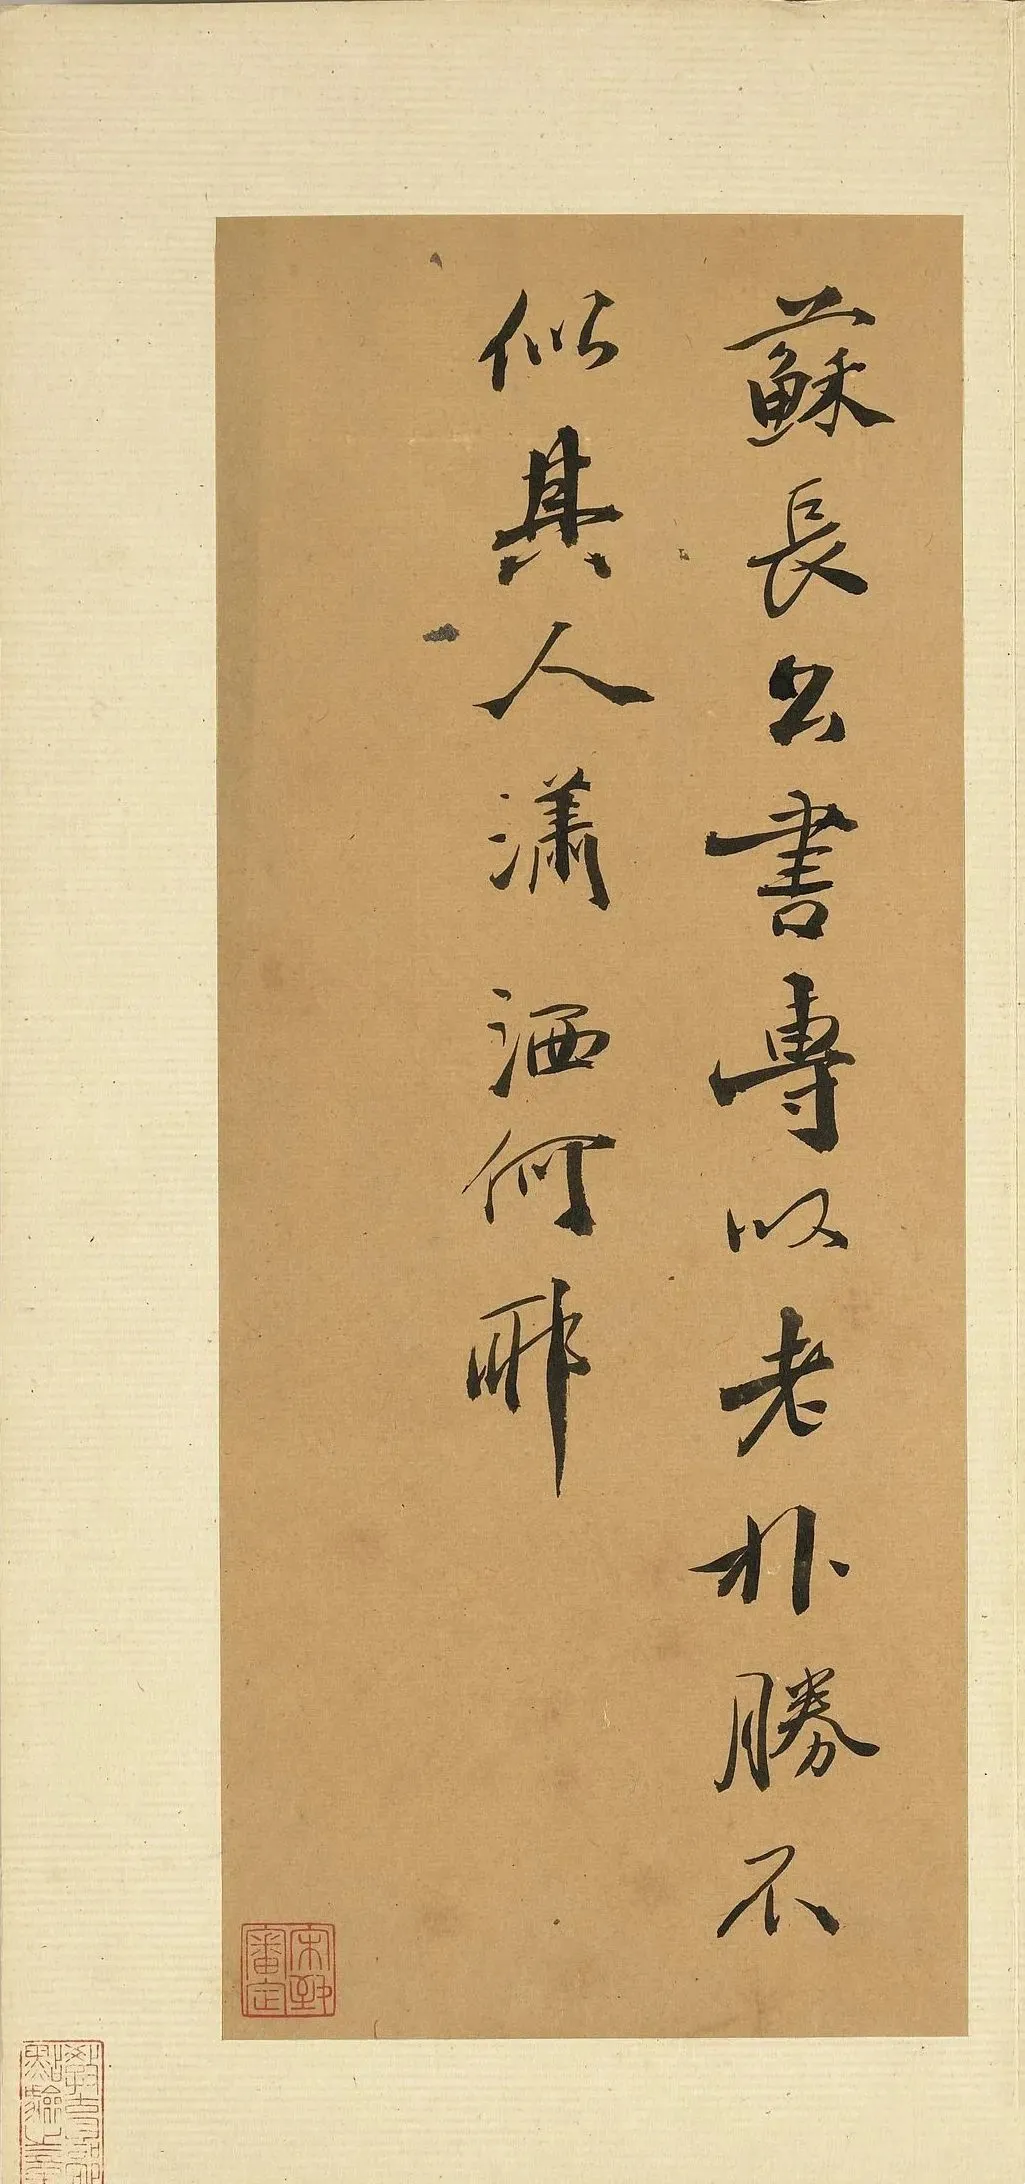 蘇長公書專以老朴勝不
似其人瀟洒何邪
宋致審定